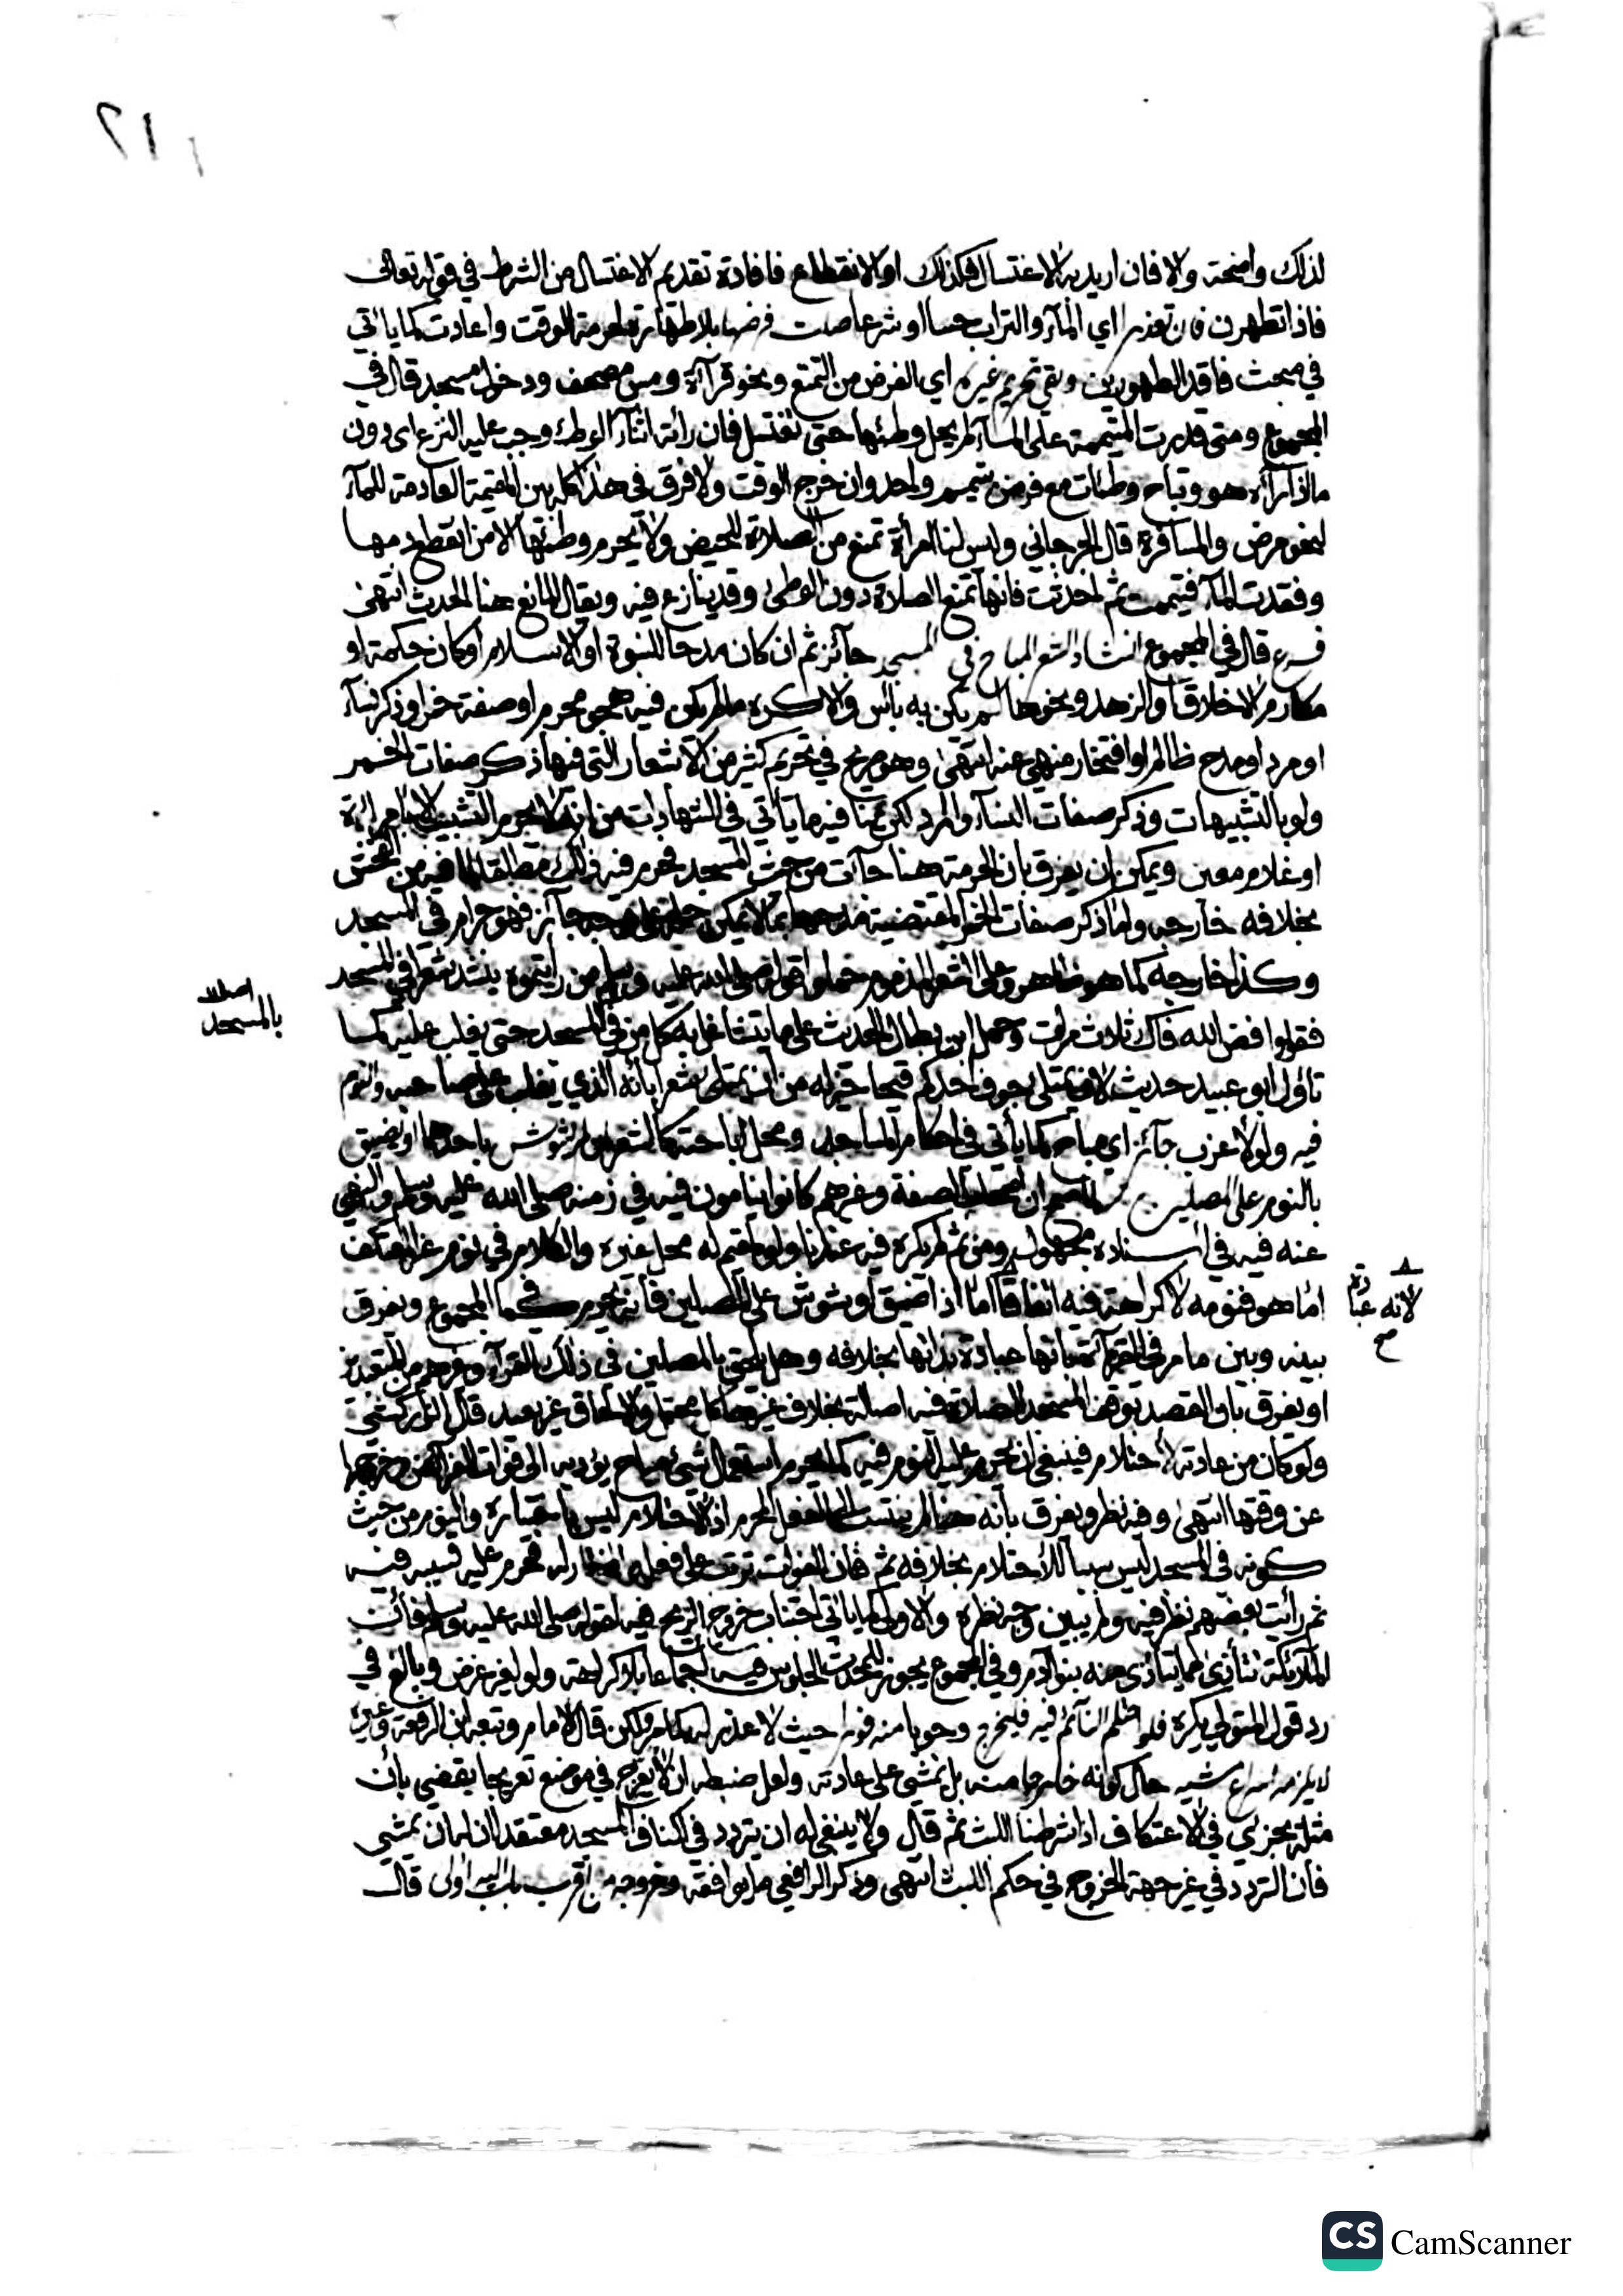 ٢١١
لذلك واضحة والا فان اريد به الاغتسال فكذلك او الانقطاع فافادة تقديم الاغتسال من الشرط في قوله تعالى
فاذا تطهرن فان تعذر اي الماء والتراب حسا او شرعا صلت فرضها بلا طهارة لحرمة الوقت واعادت كما ياتي
في مبحث فاقد الطهورين وبقي تحريم غيره اي الفرض من التمتع ونحو قرآءة ومس مصحف ودخول مسجد قال في
المجموع ومتى قدرت المتيممة على المآء لم يحل وطئها حتى تغتسل فان رأته اثناء الوطء وجب عليه النزع اى دون
ما اذا رآه هو وتباح وطئات مع فرض بتيمم واحد وان خرج الوقت ولا فرق في هذا كله بين المقيمة العادمة للمآء
لنحو مرض والمسافرة قال الجرجاني وليس لنا امرأة تمنع من الصلاة للحيض ولا يحرم وطئها الا من انقطع دمها
وفقدت المآء فتيممت ثم احدثت فانها تمنع الصلاة دون الوطئ وقد ينازع فيه ويقال المانع هنا الحدث انتهى
فرع قال في المجموع انشاد الشعر المباح في المسجد جآئز ثم ان كان مدحا للنبوة او الاسلام او كان حكمة او
مكارم الاخلاق او الزهد ونحوها لم يكن به بأس والا كره ما لم يكن فيه هجو محرم او صفة خمر او ذكر نسآء
او مرد او مدح ظالم او افتخار منهي عنه انتهى وهو صريح في تحريم كثير من الاشعار التي فيها ذكر صفات الخمر
ولو بالتشبيهات وذكر صفات النسآء والمرد لكن ينافيه ما يأتي في الشهادات من انه لا يحرم التشبيب الا بامرأة
او غلام معين ويمكن ان يفرق بان الحرمة هنا جآءت من حيث المسجد فحرم فيه ذلك مطلقا لما فيه من الفحش
بخلافه خارجه واما ذكر صفات الخمر المقتضية مدحها بما لا يمكن حمله على وجه جآئز فهو حرام في المسجد
وكذا خارجه كما هو ظاهر وعلى الشعر المذموم حملوا قوله صلى الله عليه وسلم من رأيتموه ينشد شعرا في المسجد
فقولوا فض الله فاك ثلاث مرات وحمل ابن بطال الحديث على ما يتشاغل به كل من في المسجد حتى يغلب عليه كما
تأول ابو عبيد حديث لان يمتلى جوف احدكم قيحا خير له من ان يمتلى شعرا بأنه الذي يغلب على صاحبه والنوم
فيه ولو لاعزب جآئز اي مباح كما يأتي في احكام المساجد ومحل اباحته كالشعر ان لم يشوش باحدهما او يضيق
بالنوم على المصلين لما صح ان اصحاب الصفة وغيرهم كانوا ينامون فيه في زمنه صلى الله عليه وسلم والنهي
عنه فيه في اسناده مجهول ومن ثم لم يكره فيه عندنا ولو لمقيم له محل غيره والكلام في نوم غير المعتكف
اما هو فنومه لا كراهة فيه اتفاقا اما اذا ضيق او شوش على المصلين فأنه يحرم كما في المجموع ويفرق
بينه وبين ما مر في القرآءة بانها عبادة بذاتها بخلافه وهل يلحق بالمصلين في ذلك القرآء ونحوهم من المتعبدين
او يفرق بان القصد بوقف المسجد الصلاة فيه اصالة بخلاف غيرها كل محتمل والالحاق غير بعيد قال الزركشي
ولو كان من عادته الاحتلام فينبغي ان يحرم عليه النوم فيه كما يحرم استعمال شئ مباح يؤديه الى فوات الفرائض وخروجها
عن وقتها انتهى وفيه نظر ويفرق بأنه هنا لم يتسبب الى الفعل المحرم اذ الاحتلام ليس باختياره والنوم من حيث
كونه في المسجد ليس سببا للاحتلام بخلافه ثم فان الفوات ترتب على فعله المختار له فحرم عليه تسببه فيه
ثم رأيت بعضهم نظر فيه ولم يبين وجه نظره والاولى كما ياتي اجتناب خروج الريح فيه لقوله صلى الله عليه وسلم فأن
الملائكة تتأذى مما يتأذى منه بنوا آدم وفي المجموع يجوز للمحدث الجلوس فيه اجماعا بلا كراهة ولو لغير غرض وبالغ في
رد قول المتولي يكره فلو احتلم النآئم فيه فليخرج وجوبا منه فورا حيث لا عذر له كما مر ولكن قال الامام وتبعه ابن الرفعة وغيره
لا يلزمه اسراع مشيه حال كونه خارجا منه بل يمشي على عادته ولعل ضبطه ان لا يعرج في موضع تعريجا يقضي بأن
مثله يجزي في الاعتكاف اذا شرطنا اللبث ثم قال ولا ينبغي له ان يتردد في اكناف المسجد معتقدا ان له ان يمشي
فان التردد في غير جهة الخروج في حكم اللبث انتهى وذكر الرافعي ما يوافقه وخروجه من اقرب باب اليه اولى قال
اصلا
بالمسجد
لانه عبادة
صح
CS CamScanner